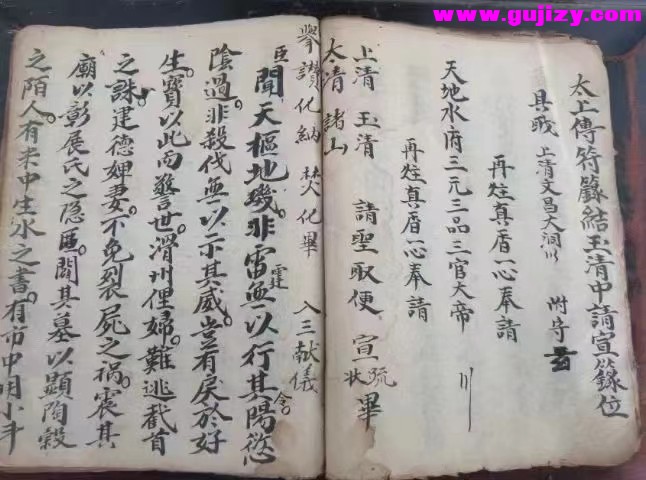 www.gujizy.com
太上傳符籙結玉清中請宣籙位
具職 上清文昌大洞 附守
再炷真香一心奉請
天地水府三元三品三官大帝
再炷真香一心奉請
上清 玉清 請聖取便 宣疏状畢
太清 諸山
舉讚化納 焚化畢 入三献儀
臣聞天樞地璣。非雷霆無以行其陽愆
陰過。非殺伐無以示其威。豈有戾於好
生。實以此而警世。滑州俚婦。難逃截首
之誅。建德婢妻。不免裂屍之禍。震其
廟以彰展氏之隐匿。闢其墓以顯陶穀
之陌。人有未中生水之書。有市中用小斗